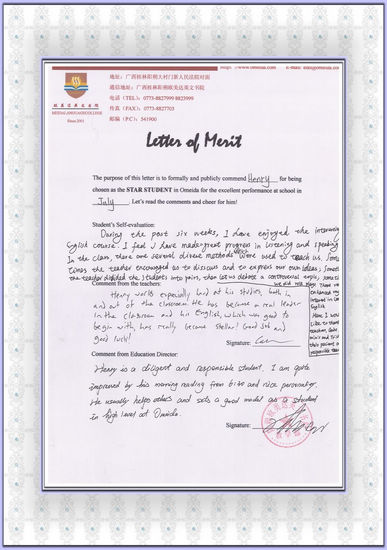 地址：广西桂林阳朔大村门新人民法院对面
通信地址：广西桂林阳朔欧美达英文书院
电话（TEL）：0773-8827999 8823999
传真（FAX）：0773-8827703
邮编（P.C）：541900
Since 2001
Letter of Merit
The purpose of this letter is to formally and publicly commend Henry for being
chosen as the STAR STUDENT in Omeida for the excellent performance at school in
July. Let's read the comments and cheer for him!
Student's Self-evaluation:
During the past six weeks, I have enjoyed the
English course. I feel I have made great progress in listening and speaking
In the class, there are several direct methods were used to teach us. Some
times the teacher encouraged us to discuss and to express our own ideas, Someti
the teacher divided the students into pairs, then let us debate a controversial topic,
we did role plays.
Comment from the teachers:
Henry works especially hard at his studies, both in
and out of the classroom. He has become a real leader
in the classroom and his English, which was good to
begin with, has really become stellar! Good Job and
good luck!
Signature:
Comment from Education Director:
Henry is a diligent and responsible student. I am quite
impressed by his morning reading from 6:00 and nice personality.
He usually helps others and sets a good model as a student
in high level at Omeida.
Signature: